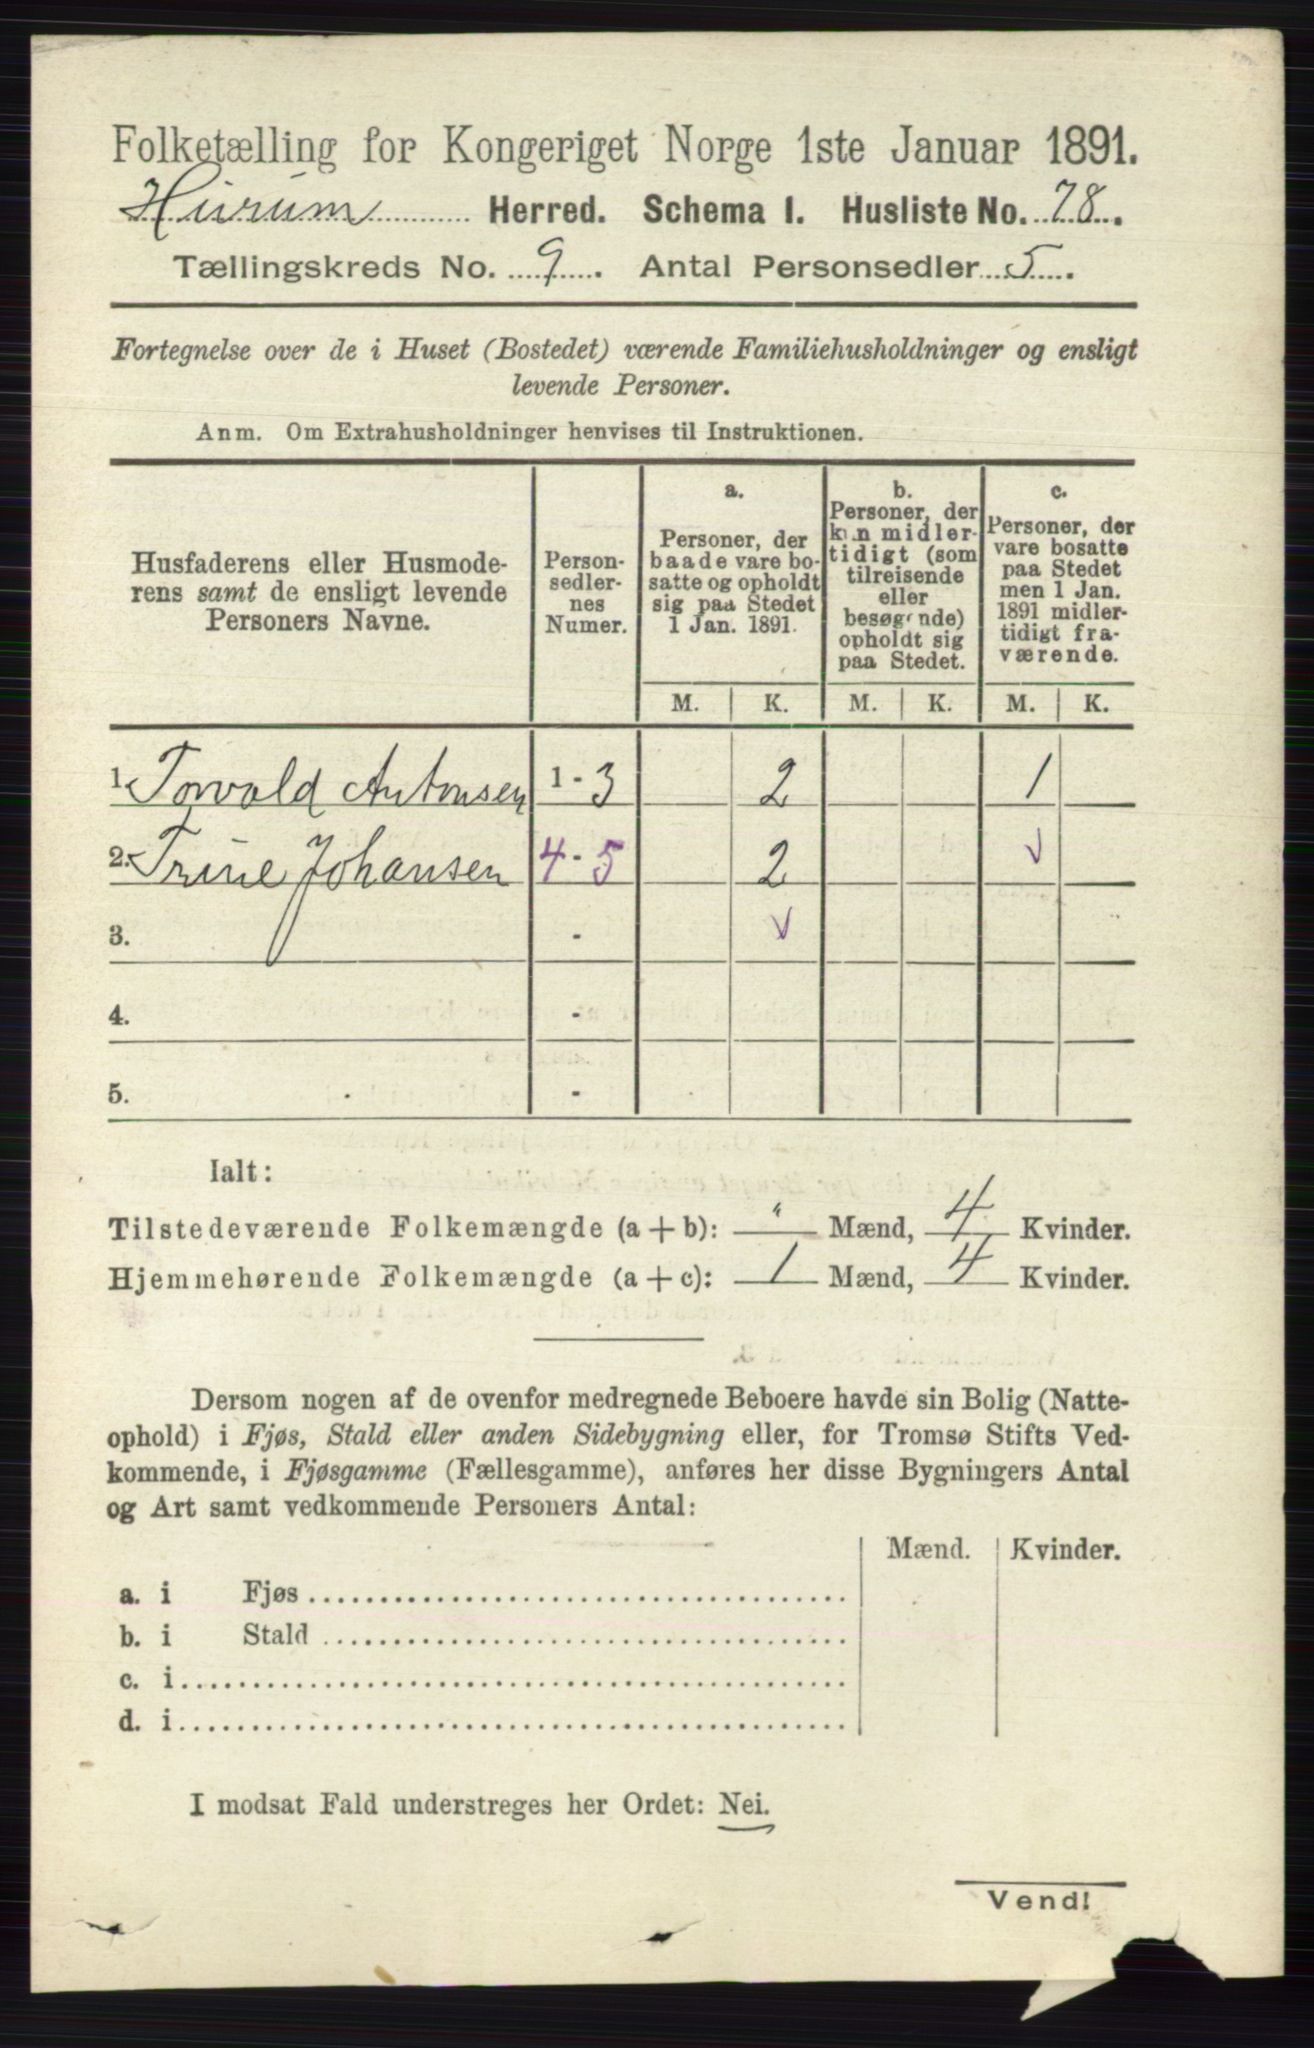 Folketælling for Kongeriget Norge 1ste Januar 1891.
Hurum Herred. Schema I. Husliste No. 78.
Tællingskreds No. 9. Antal Personsedler 5.
Fortegnelse over de i Huset (Bostedet) værende Familiehusholdninger og ensligt
levende Personer.
Anm. Om Extrahusholdninger henvises til Instruktionen.
Husfaderens eller Husmode-
rens samt de ensligt levende
Personers Navne.
Person-
sedler-
nes
Numer.
a.
Personer, der
baade vare bo-
satte og opholdt
sig paa Stedet
1 Jan. 1891.
b.
Personer, der
kun midler-
tidigt (som
tilreisende
eller
besøgende)
opholdt sig
paa Stedet.
c.
Personer, der
vare bosatte
paa Stedet
men 1 Jan.
1891 midler-
tidigt fra-
værende.
M. K. M. K. M. K.
1. Torvald Antonsen 1 - 3 2 1
2. Trine Johansen 4 - 5 2 √
3. - √
4. -
5. -
Ialt:
Tilstedeværende Folkemængde (a + b): " Mænd, 4 Kvinder.
Hjemmehørende Folkemængde (a + c): 1 Mænd, 4 Kvinder.
Dersom nogen af de ovenfor medregnede Beboere havde sin Bolig (Natte-
ophold) i Fjøs, Stald eller anden Sidebygning eller, for Tromsø Stifts Ved-
kommende, i Fjøsgamme (Fællesgamme), anføres her disse Bygningers Antal
og Art samt vedkommende Personers Antal:
Mænd. Kvinder.
a. i Fjøs
b. i Stald
c. i
d. i
I modsat Fald understreges her Ordet: Nei.
Vend!